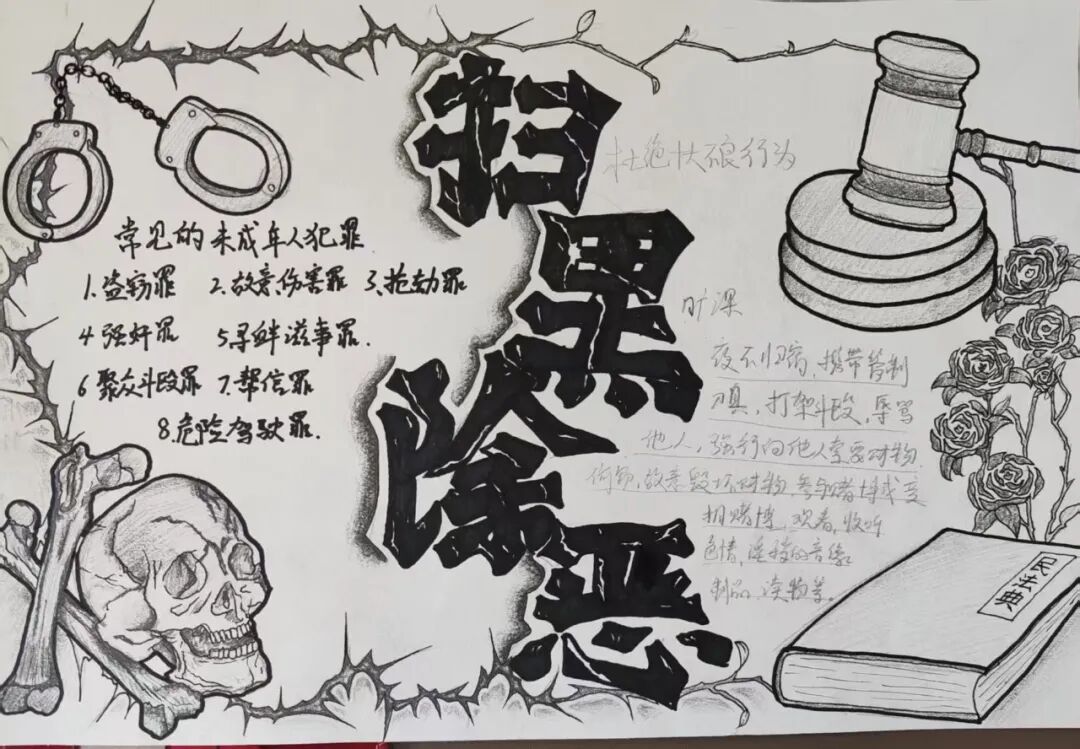 扫黑除恶
常见的未成年人犯罪
1.盗窃罪 2.故意伤害罪 3.抢劫罪
4 强奸罪 5寻衅滋事罪.
6 聚众斗殴罪 7.帮信罪
8.危险驾驶罪.
杜绝不良行为
旷课
夜不归宿,携带管制
刀具,打架斗殴,辱骂
他人,强行向他人索要财物.
故意毁坏财物,参与赌博或变
相赌博,观看,收听
色情,淫秽的音像
制品,读物等。
民法典